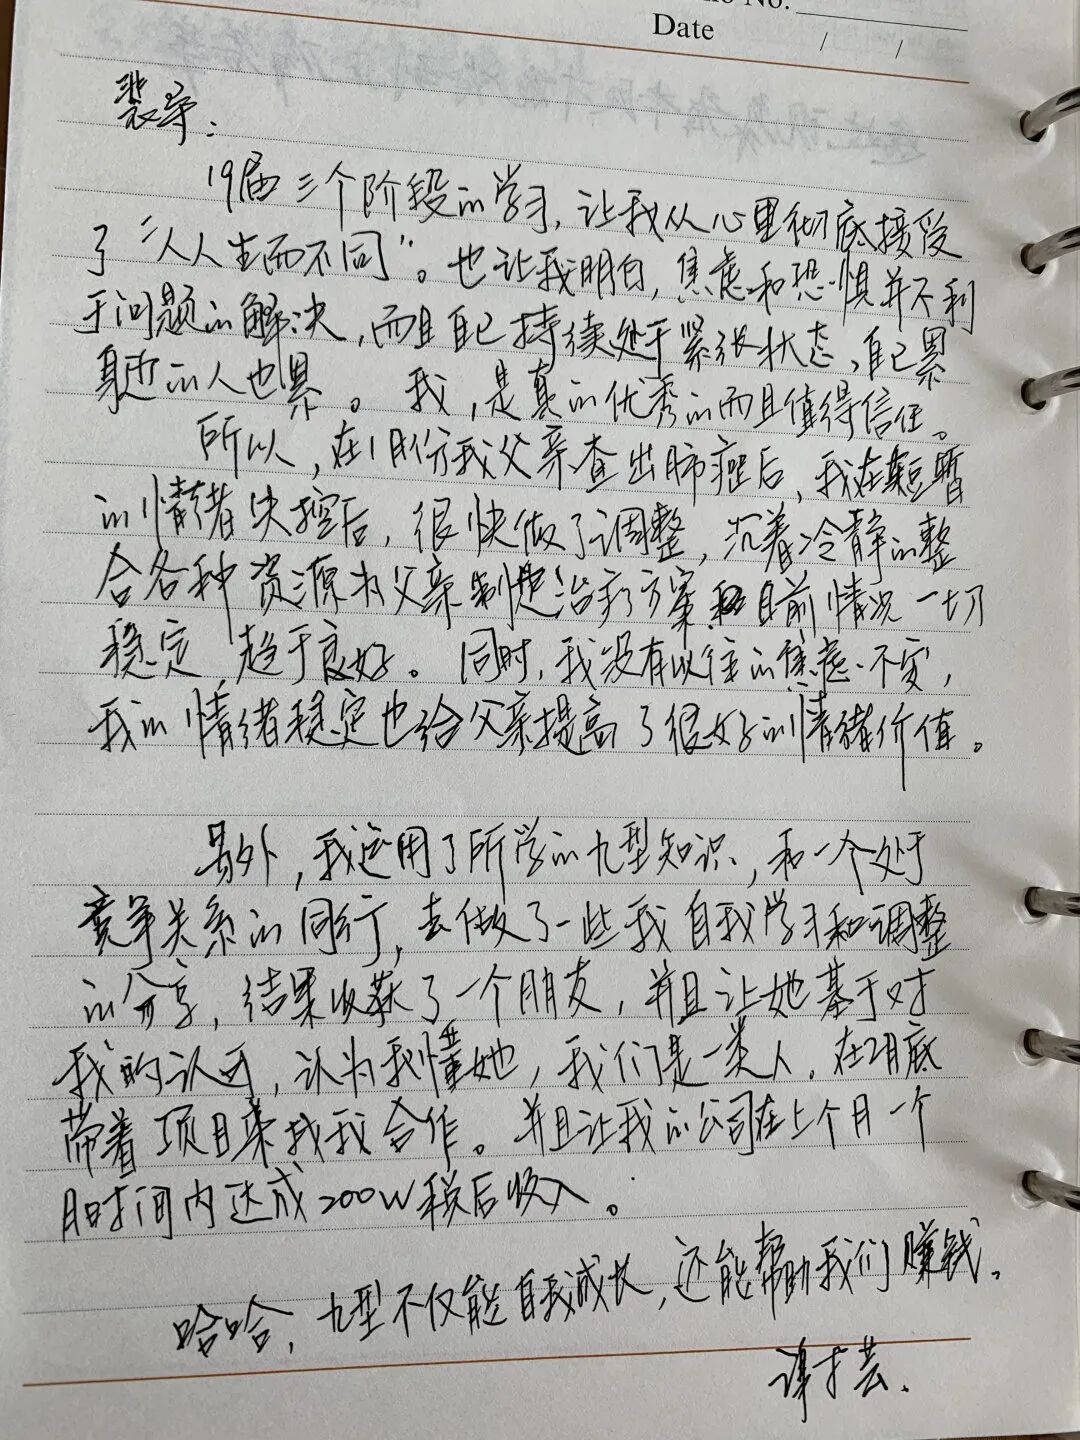 No.
Date / /
裴宇:
19届三个阶段的学习,让我从心里彻底接受
了“人人生而不同”。也让我明白,焦虑和恐惧并不利
于问题的解决,而且自己持续处于紧张状态,自己累
身边的人也累。我,是真的优秀的而且值得信任。
所以,在1月份我父亲查出肺癌后,我在短暂
的情绪失控后,很快做了调整,沉着冷静的整
合各种资源为父亲制定治疗方案 目前情况一切
稳定,趋于良好。同时,我没有以往的焦虑、不安,
我的情绪稳定也给父亲提高了很好的情绪价值。
另外,我运用了所学的九型知识,和一个处于
竞争关系的同行,去做了一些我自我学习和调整
的分享,结果收获了一个朋友,并且让她基于对
我的认可,认为我懂她,我们是一类人,在2月底
带着项目来找我合作。并且让我的公司在上个月一个
月时间内达成200W税后收入。
哈哈,九型不仅能自我成长,还能帮助我们赚钱。
谢才芸.